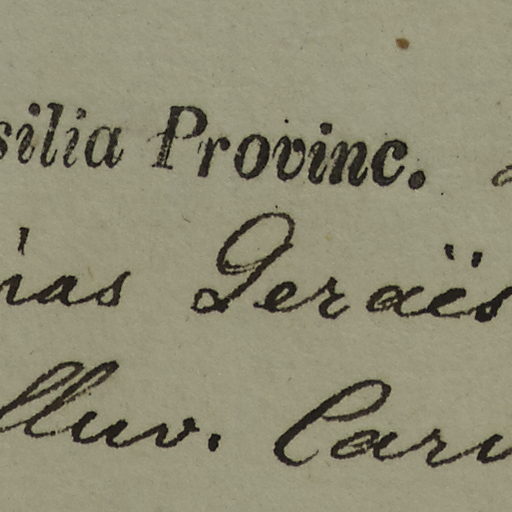 silia Provinc.
nas Geraës
lluv. Caru